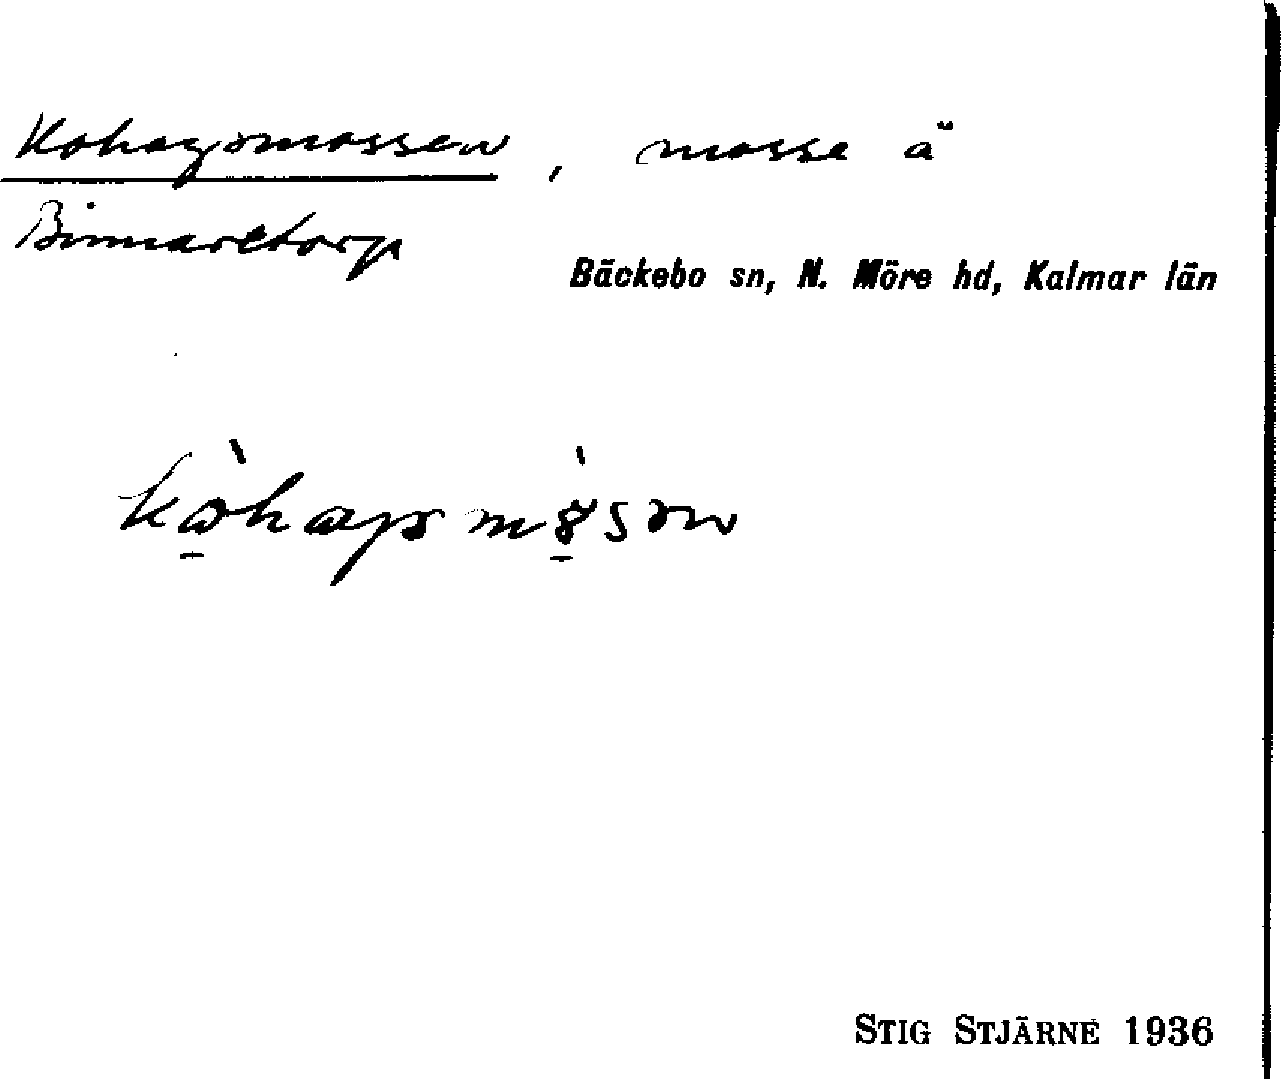 Kohagsmossen, mosse å
Binnaretorp
Bäckebo sn, N. Möre hd, Kalmar län
STIG STJÄRNE 1936